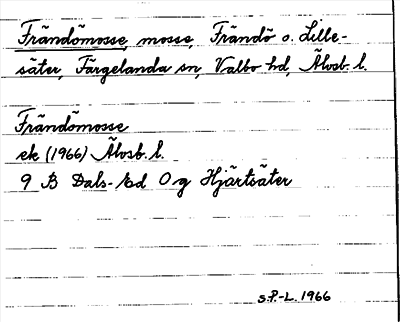 Frändömosse, mosse, Frändö o. Lille-
säter, Färgelanda sn, Valbo hd, Älvsb. l.
Frändömosse
ek (1966) Älvsb. l.
9 B Dals-Ed 0 g Hjärtsäter
S.P.-L. 1966